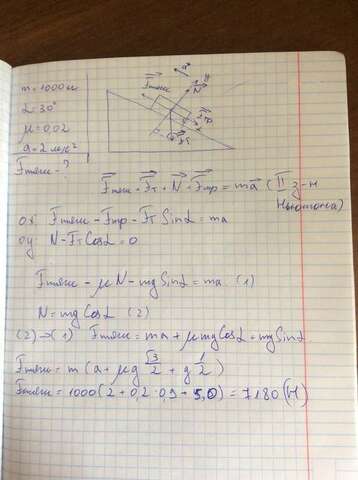 m=1000кг
α=30°
μ=0,02
a=2м/с²
Fтяги-?
a⃗
y
F⃗тяги
N⃗
F⃗тр
F⃗тяги+F⃗т+N⃗+F⃗тр=ma⃗ (II з-н
Ньютона)
ox: Fтяги-Fтр-Fт Sinα=ma
oy: N-Fт Cosα=0
Fтяги-μN-mg Sinα=ma (1)
N=mg Cosα (2)
(2)→(1) Fтяги=ma+μmgCosα+mgSinα
Fтяги=m(a+μg √3/2+g 1/2)
Fтяги=1000(2+0,2·0,9+5,0)=7180(Н)